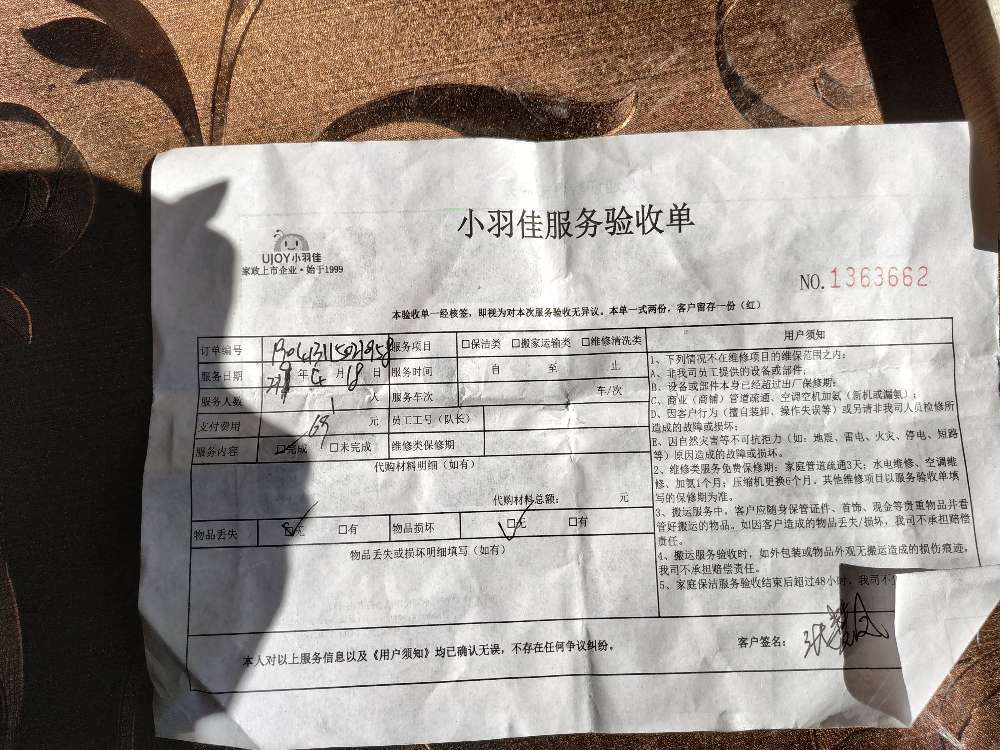 小羽佳服务验收单
UJOY小羽佳
家政上市企业·始于1999
NO.1363662
本验收单一经核签，即视为对本次服务验收无异议。本单一式两份，客户留存一份（红）
订单编号
服务项目 □保洁类 □搬家运输类 □维修清洗类
服务日期 年 4 月 18 日 服务时间 自 至 止
服务人数 1 人 服务车次 车/次
支付费用 元 员工工号（队长）
服务内容 □完成 □未完成 维修类保修期
代购材料明细（如有）
代购材料总额： 元
物品丢失 □无 □有 物品损坏 □无 □有
物品丢失或损坏明细填写（如有）
用户须知
1、下列情况不在维修项目的维保范围之内：
A、非我司员工提供的设备或部件；
B、设备或部件本身已经超过出厂保修期；
C、商业（商铺）管道疏通、空调空机加氨（新机或漏氨）；
D、因客户行为（擅自装卸、操作失误等）或另请非我司人员检修所
造成的故障或损坏；
E、因自然灾害等不可抗拒力（如：地震、雷电、火灾、停电、短路
等）原因造成的故障或损坏。
2、维修类服务免费保修期：家庭管道疏通3天；水电维修、空调维
修、加氨1个月；压缩机更换6个月。其他维修项目以服务验收单填
写的保修期为准。
3、搬运服务中，客户应随身保管证件、首饰、现金等贵重物品并看
管好搬运的物品。如因客户造成的物品丢失/损坏，我司不承担赔偿
责任。
4、搬运服务验收时，如外包装或物品外观无搬运造成的损伤痕迹，
我司不承担赔偿责任。
5、家庭保洁服务验收结束后超过48小时，我司不
本人对以上服务信息以及《用户须知》均已确认无误，不存在任何争议纠纷。
客户签名：